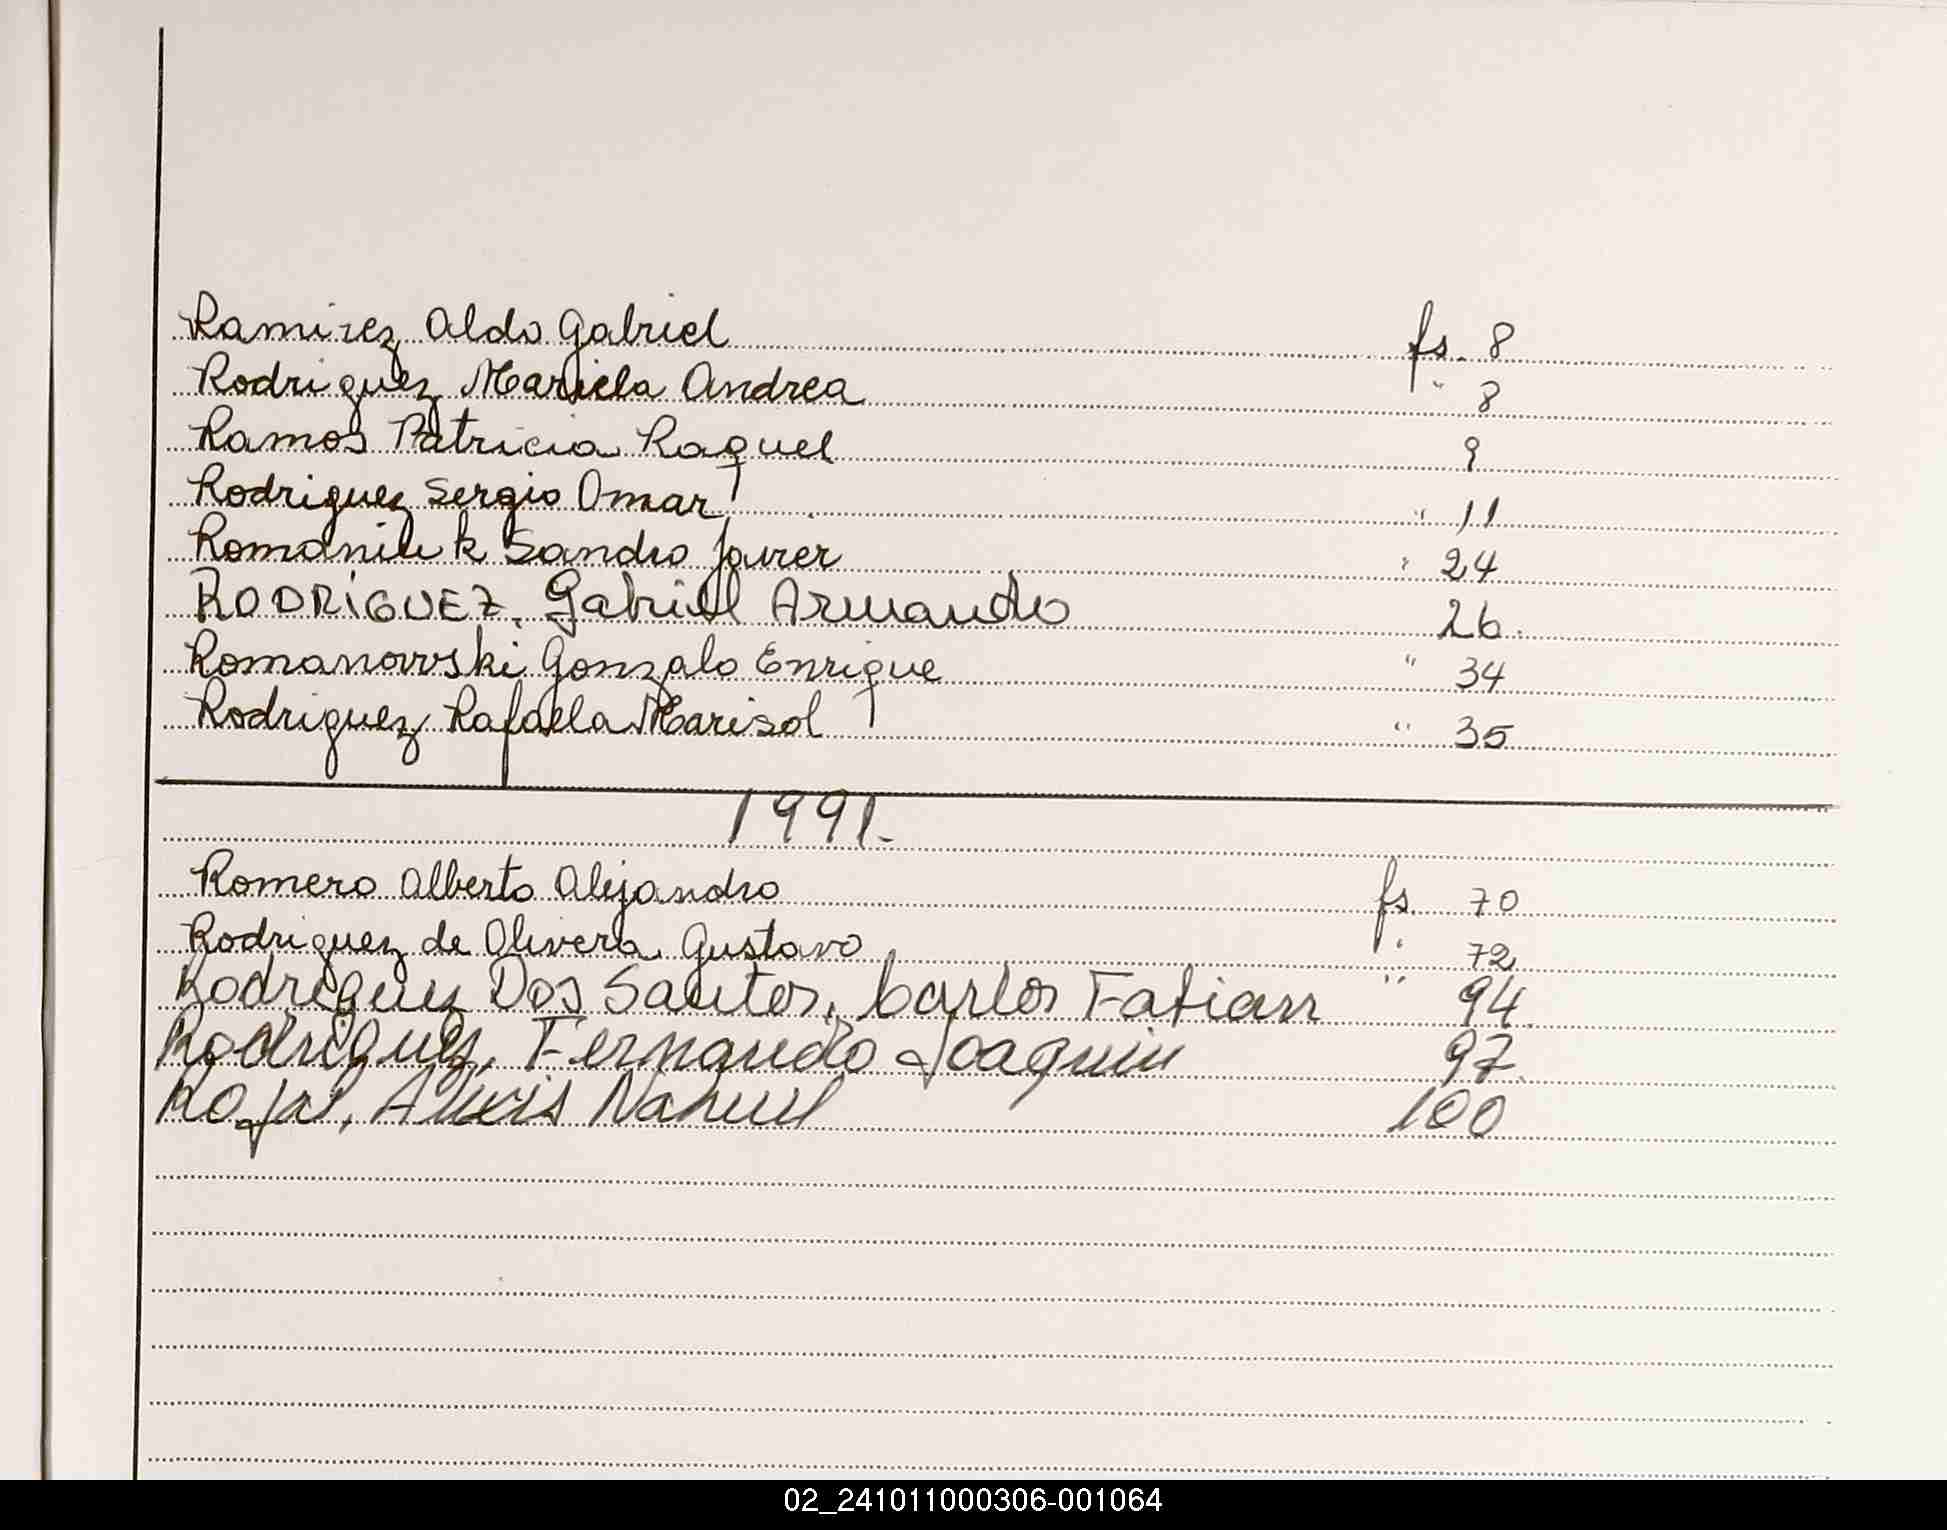 Ramirez Aldo Gabriel fs. 8
Rodriguez Mariela Andrea " 8
Ramos Patricia Raquel 9
Rodriguez Sergio Omar " 11
Romaniuk Sandro Javier " 24
RODRÍGUEZ, Gabriel Armando 26.
Romanowski Gonzalo Enrique " 34
Rodriguez Rafaela Marisol " 35
1991.
Romero Alberto Alejandro fs. 70
Rodriguez de Olivera Gustavo " 72
Rodriguez Dos Santos, Carlos Fabian " 94
Rodriguez, Fernando Joaquin 97
Rojas, Alexis Nahuel 100
02_241011000306-001064